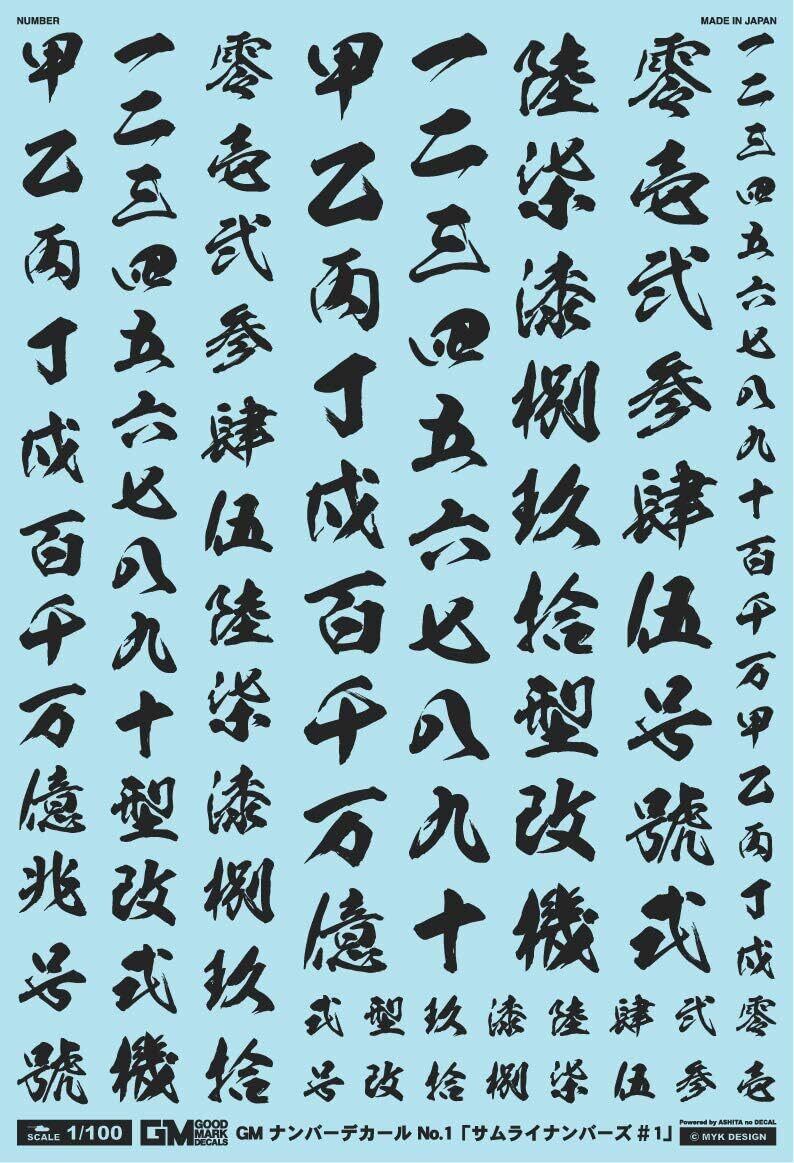 NUMBER
MADE IN JAPAN
甲乙丙丁戊百千万億兆号號
一二三四五六七八九十型改式機
零壱弐参肆伍陸柒漆捌玖拾
甲乙丙丁戊百千万億
一二三四五六七八九十
陸柒漆捌玖拾型改機
零壱弐参肆伍号號式
一二三四五六七八九十百千万甲乙丙丁戊
式型玖漆陸肆弐零
号改拾捌柒伍参壱
SCALE 1/100
GM GOOD MARK DECALS
GM ナンバーデカール No.1「サムライナンバーズ #1」
Powered by ASHITA no DECAL
© MYK DESIGN